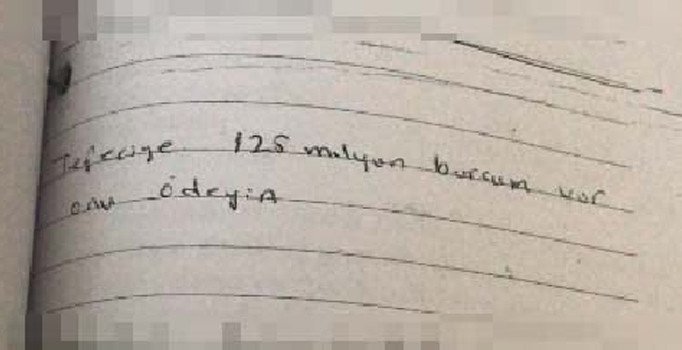 Tefeciye 125 milyon borcum var
onu ödeyin